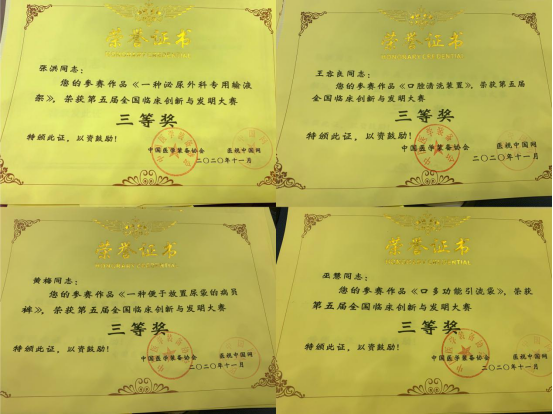 荣誉证书
HONORARY CREDENTIAL
张洪同志：
您的参赛作品《一种泌尿外科专用输液
架》，荣获第五届全国临床创新与发明大赛
三等奖
特颁此证，以资鼓励！
中国医学装备协会 医视中国网
二〇二〇年十一月
荣誉证书
HONORARY CREDENTIAL
王容良同志：
您的参赛作品《口腔清洗装置》，荣获第五届
全国临床创新与发明大赛
三等奖
特颁此证，以资鼓励！
中国医学装备协会 医视中国网
二〇二〇年十一月
荣誉证书
HONORARY CREDENTIAL
黄梅同志：
您的参赛作品《一种便于放置尿袋的病员
裤》，荣获第五届全国临床创新与发明大赛
三等奖
特颁此证，以资鼓励！
中国医学装备协会 医视中国网
二〇二〇年十一月
荣誉证书
HONORARY CREDENTIAL
巫慧同志：
您的参赛作品《口多功能引流袋》，荣获
第五届全国临床创新与发明大赛
三等奖
特颁此证，以资鼓励！
中国医学装备协会 医视中国网
二〇二〇年十一月